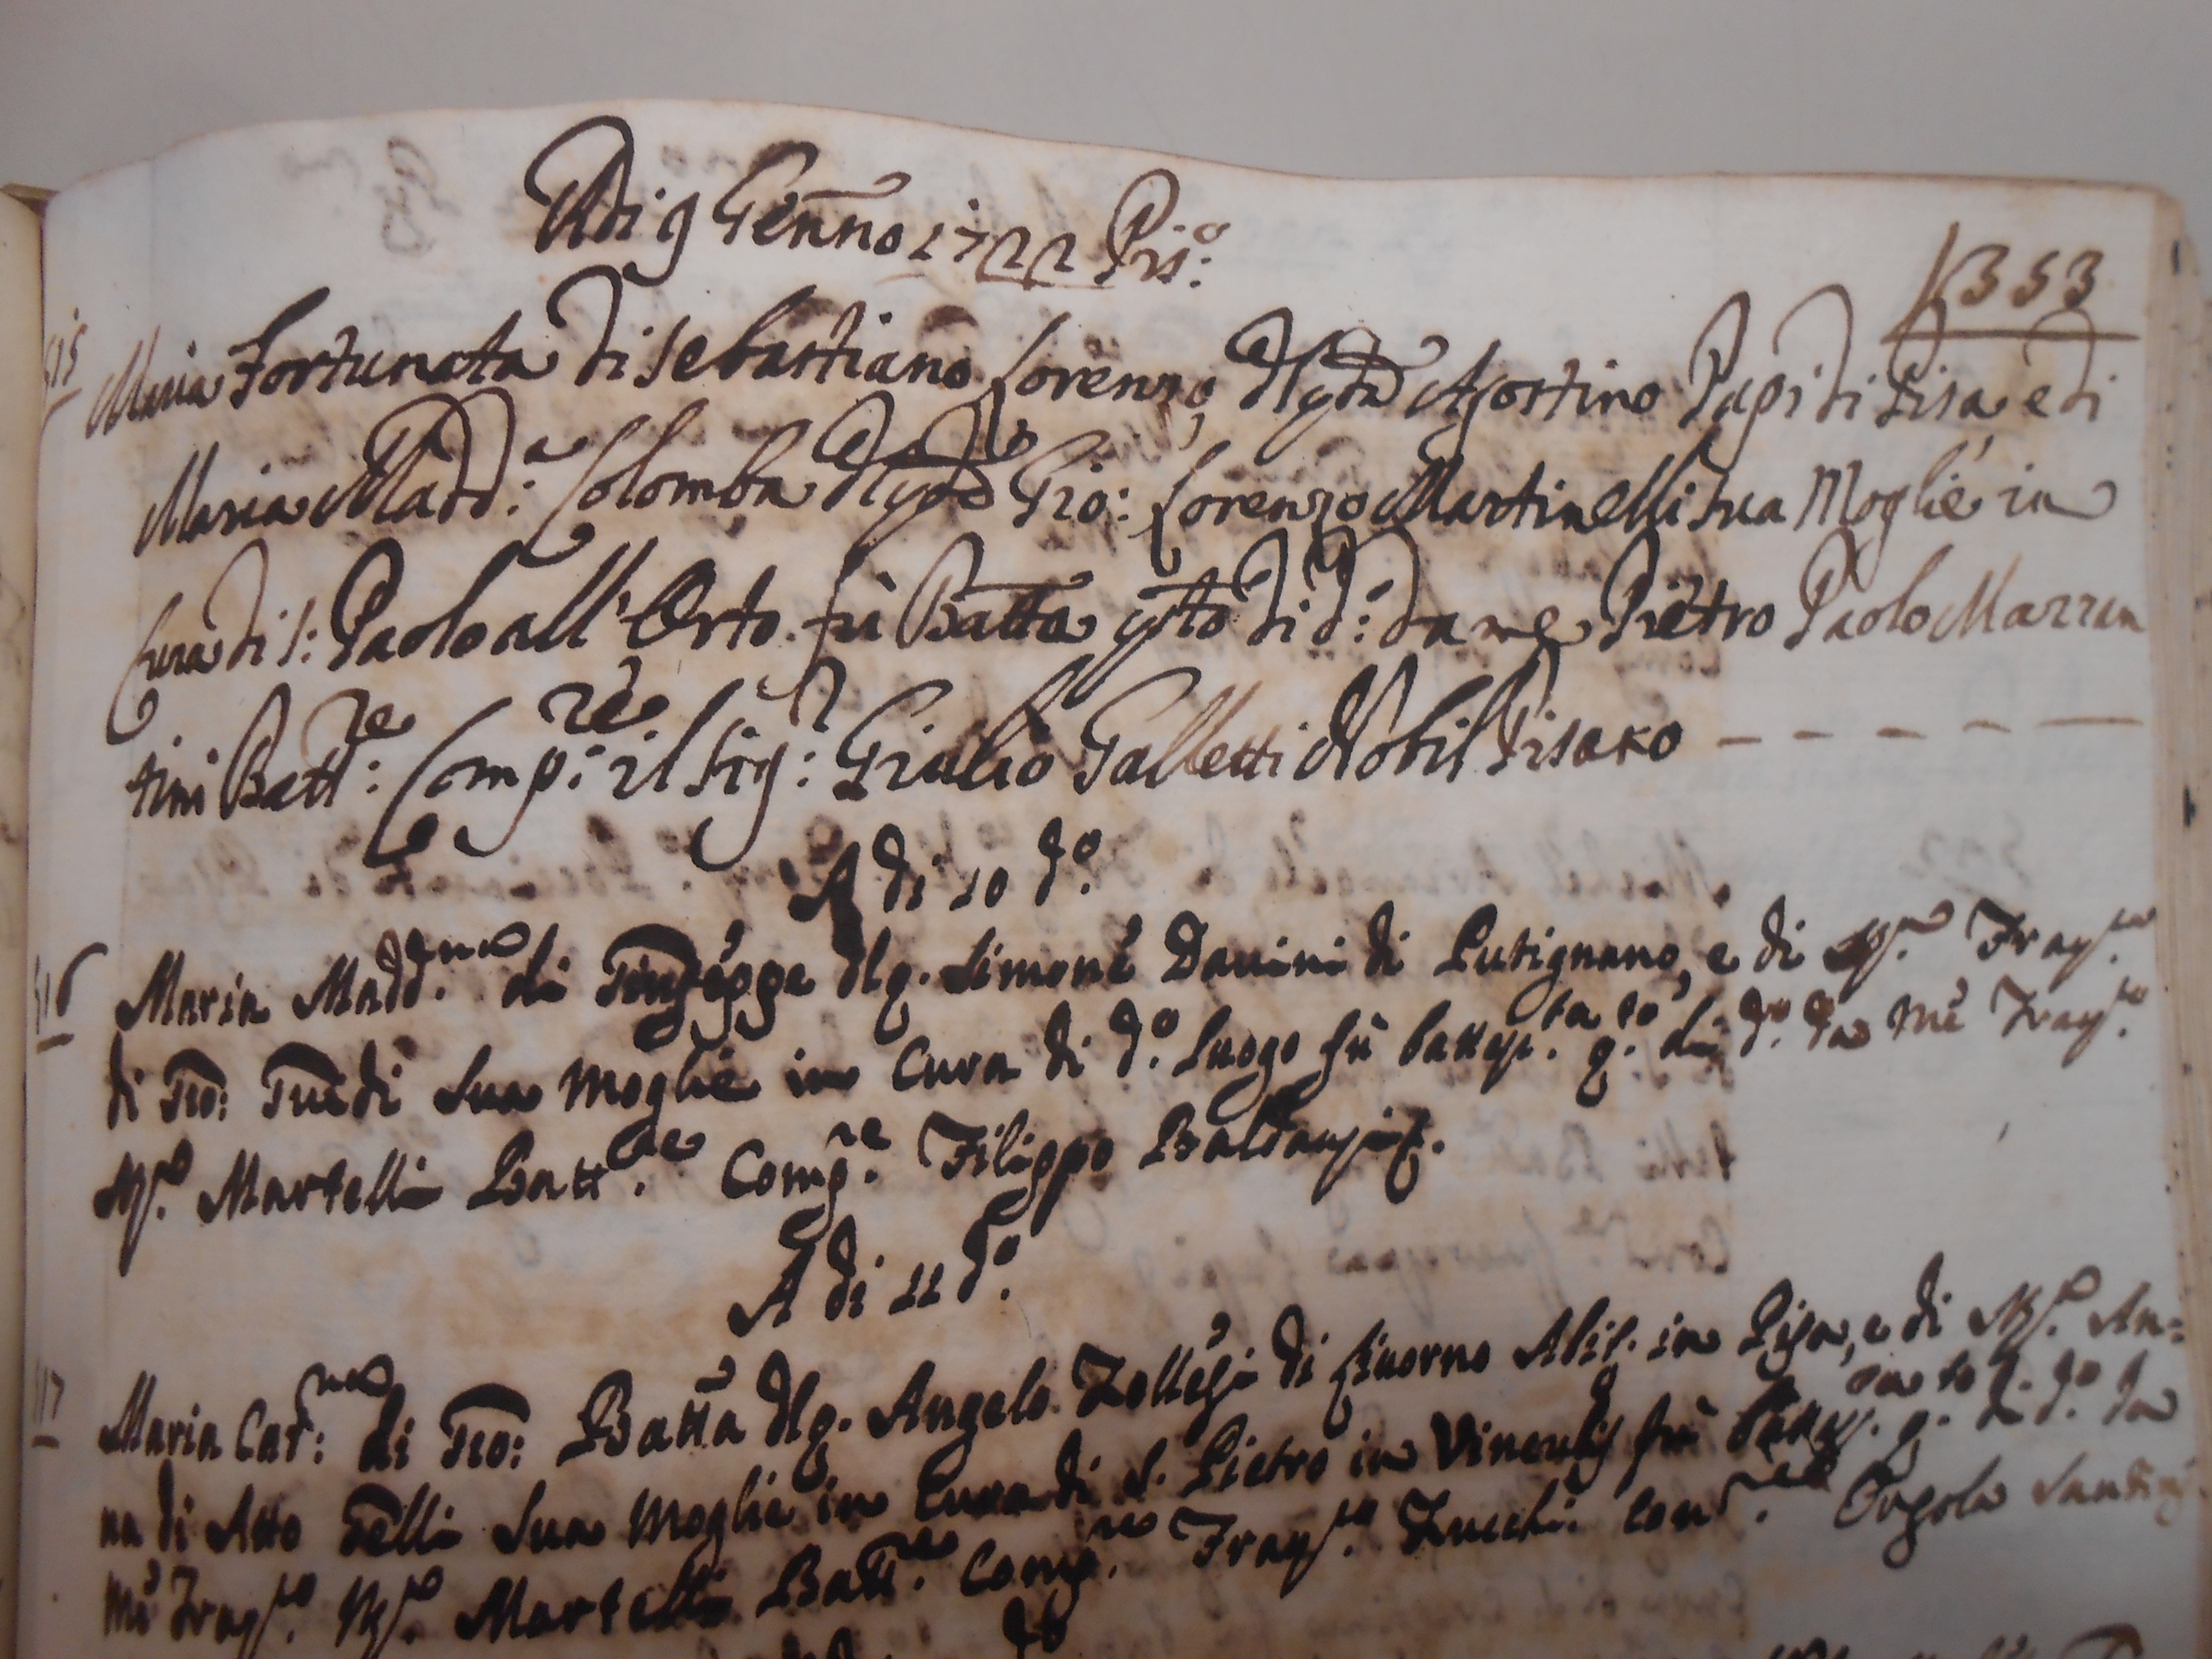 Adi 9 Genno 1722 Pis:º
353
515 Maria Fortunata di Sebastiano Lorenzo, dl qdm Agostino Papi di Pisa e di
Maria Madd:ª Colomba dl qdm Gio: Lorenzo Martinelli sua Moglie in
Cura di S: Paolo all'Orto. fù Batta qsto dì d:º da me Pietro Paolo Mazzan
tini Batt:re Comp:re il Sig:r Giulio Galletti Nobil Pisano
A di 10 d.º
516 Maria Madd.na di Giuseppe dl q. Simone Davini di Putignano, e di Mª. Franca.
di Gio: Guidi Sua Moglie in Cura di d.º luogo fù battez.ta q.to dì d.º da me Franc.º
Mª. Martelli Batt.re Comp.re Filippo
A di 11 d.º
517 Maria Cat:na di Gio: Batta dl q. Angelo di Livorno Abit. in Pisa, e di Mª. An=
na di Atto Telli Sua Moglie in Cura di S. Pietro in Vinculis fù battez.ta q.to dì d.º da
me Franc.º Mª. Martelli Batt.re Comp.re Franc.º Zucchi. Com.re Orsola Santini